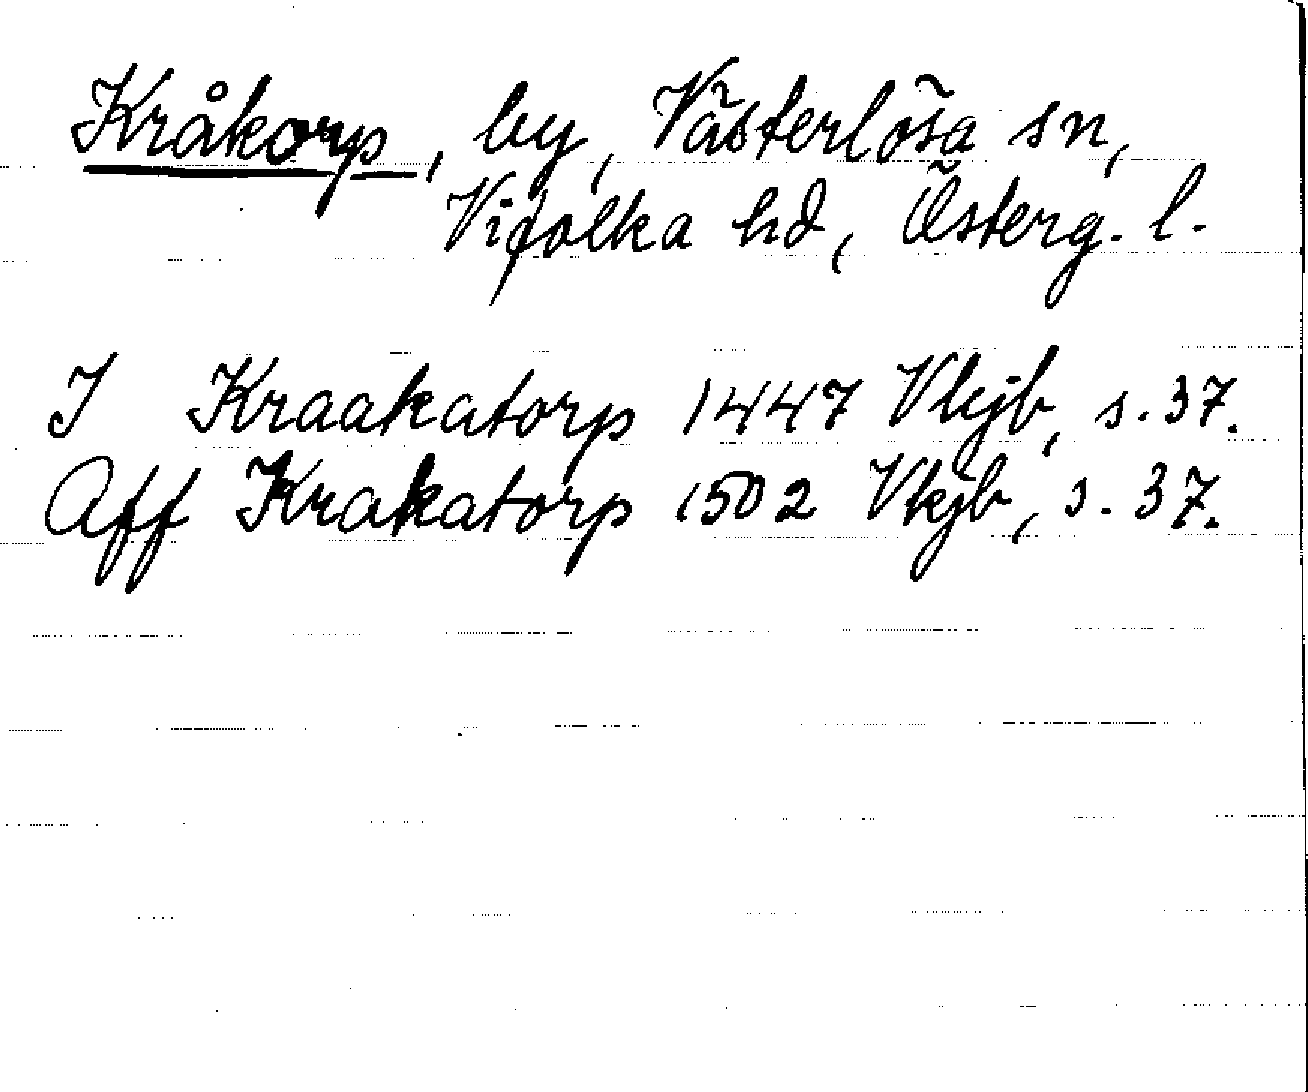 Kråkorp, by, Västerlösa sn,
Vifolka hd, Österg. l.
I Kraakatorp 1447 Vkjb, s. 37.
Aff Krakatorp 1502 Vkjb, s. 37.